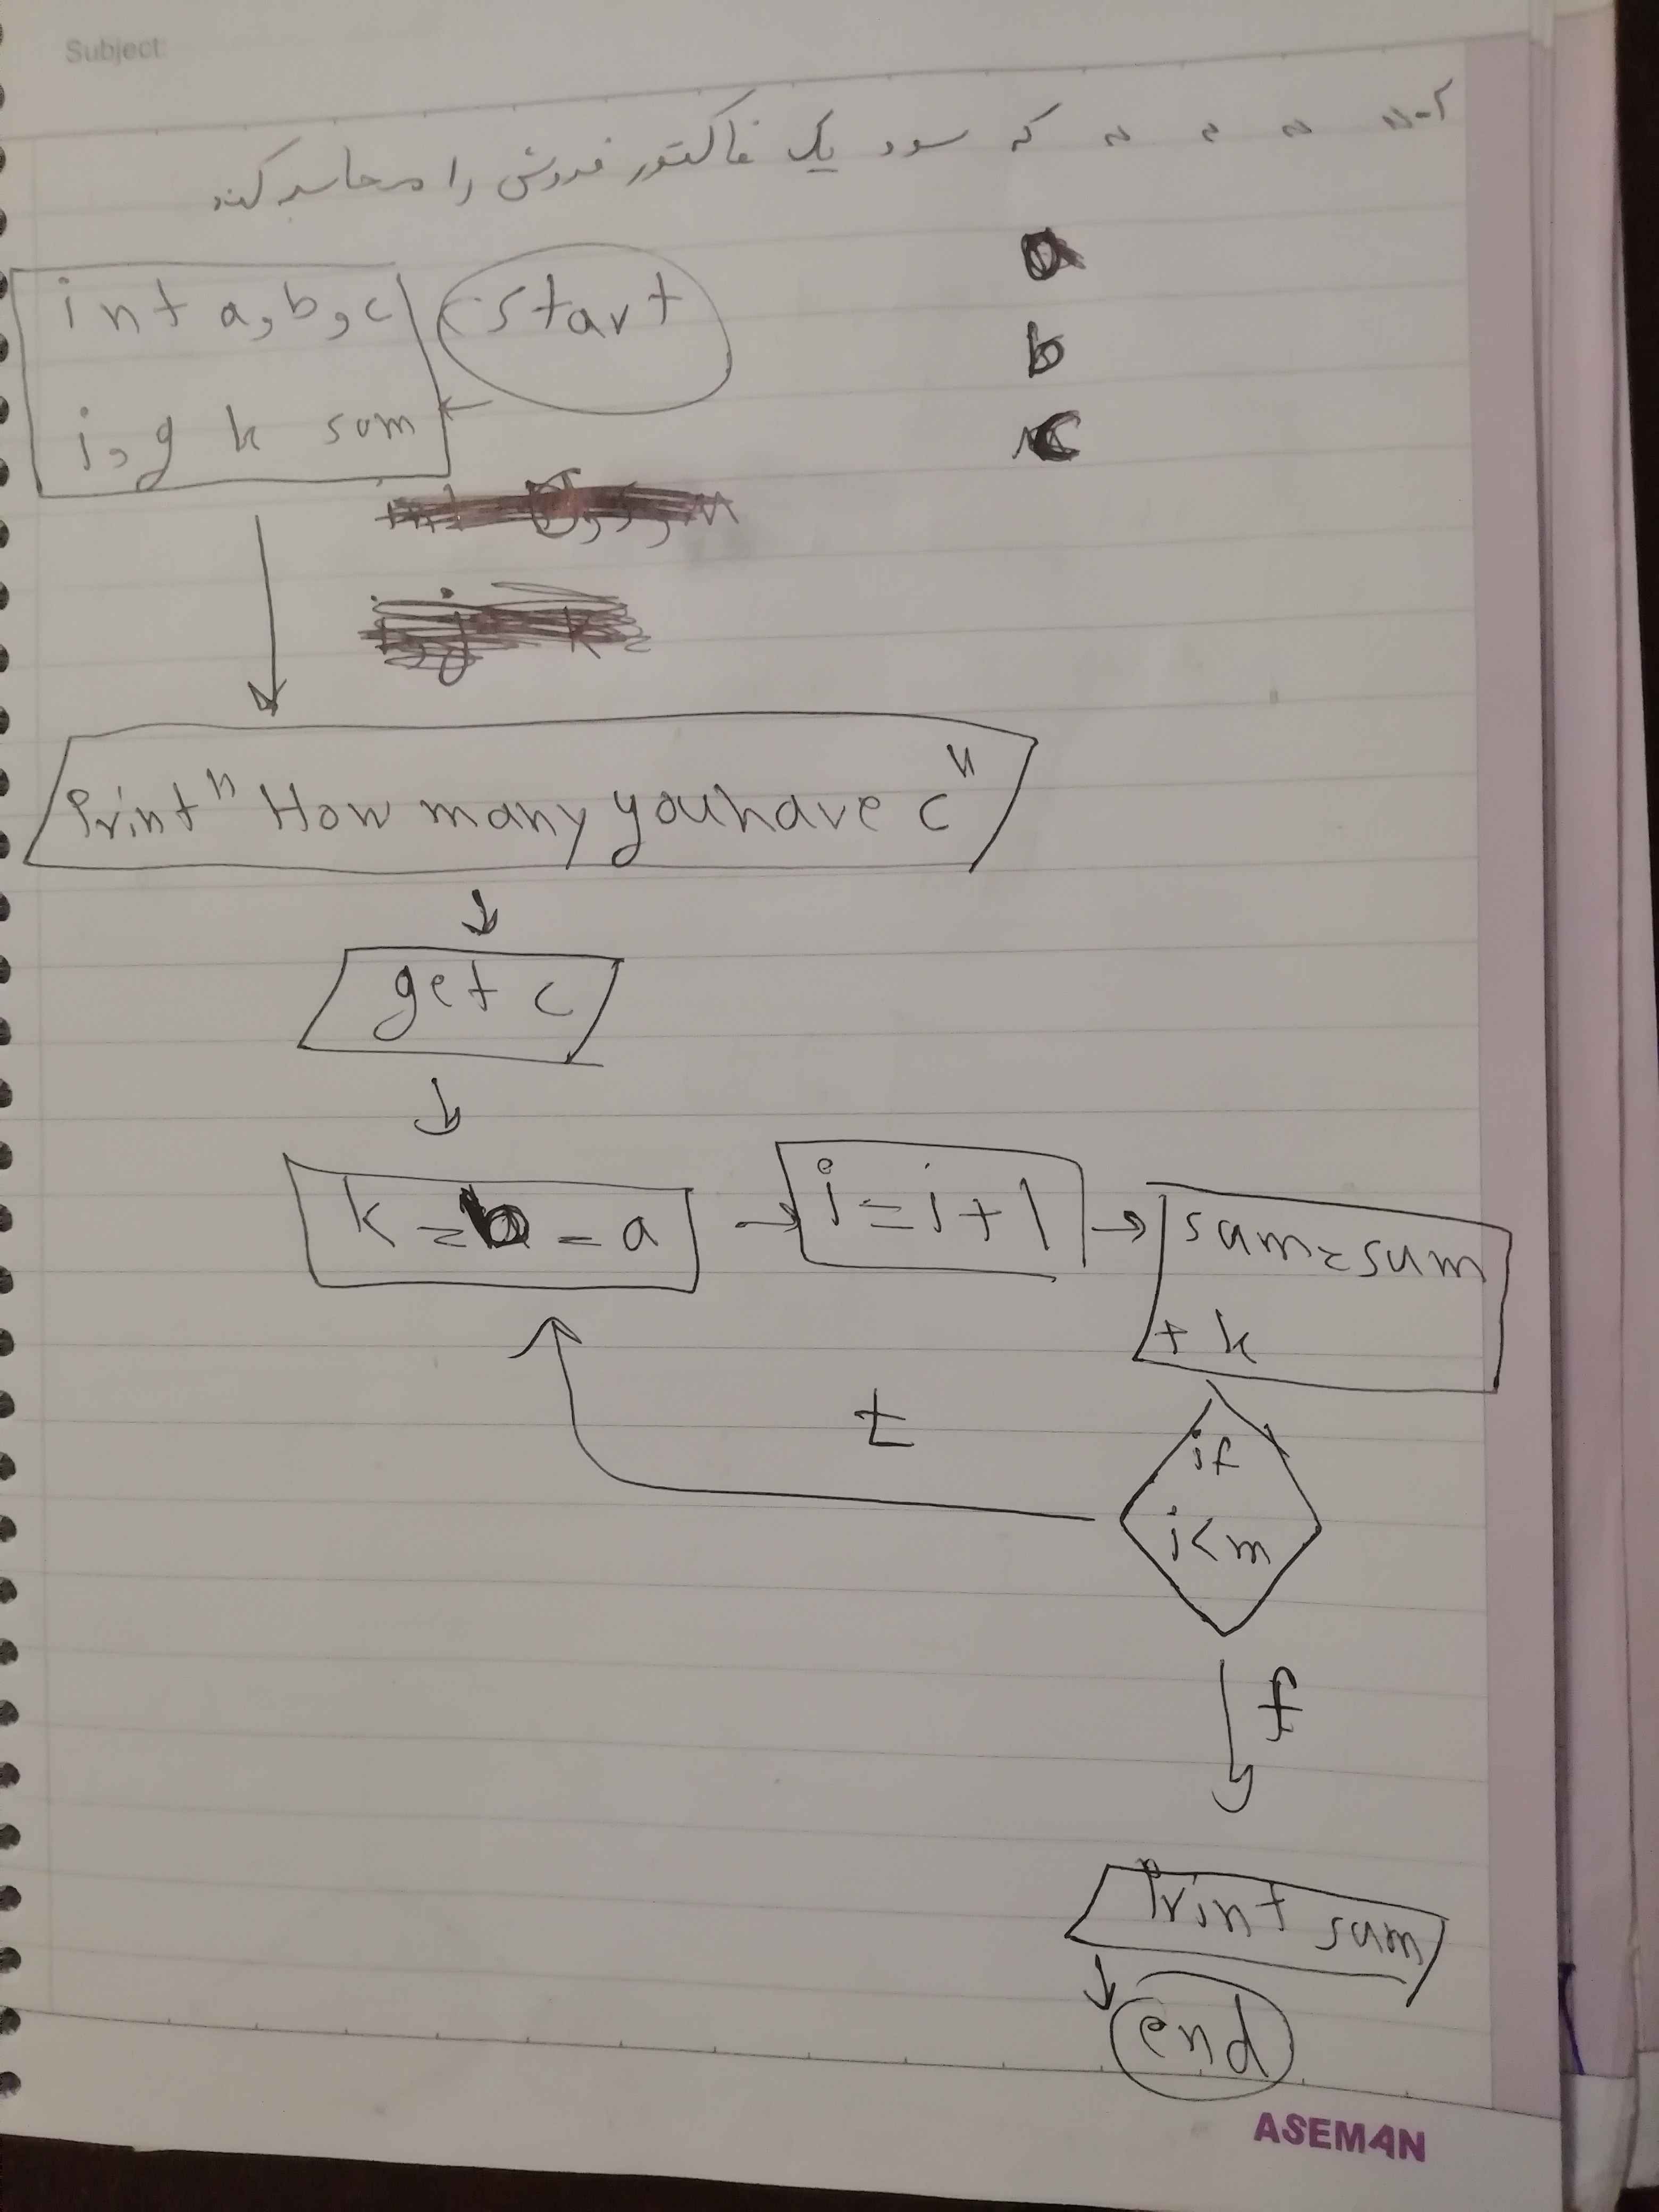 Subject:
که سود یک فاکتور فروش را محاسبه کند
a
b
c
start
int a, b, c
i, g k sum
Print" How many you have c"
get c
k = b - a
i = i + 1
sum = sum
+ k
if
i < m
t
f
Print sum
end
ASEMAN